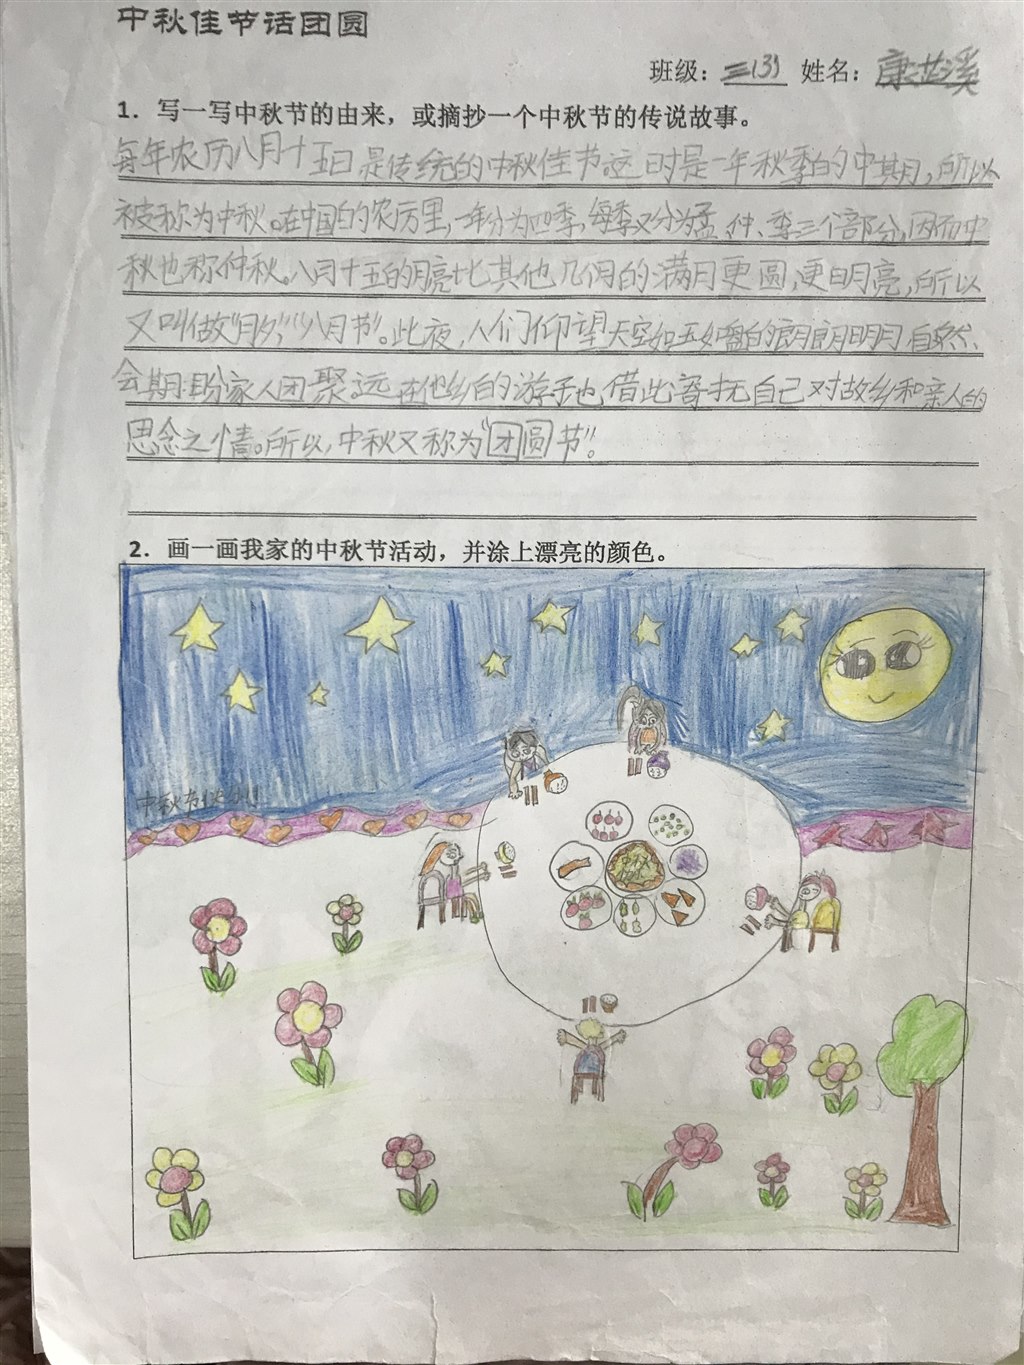 中秋佳节话团圆
班级：三(3) 姓名：康世溪
1．写一写中秋节的由来，或摘抄一个中秋节的传说故事。
每年农历八月十五日是传统的中秋佳节。这时是一年秋季的中期，所以
被称为中秋。在中国的农历里，一年分为四季，每季又分为孟、仲、季三个部分，因而中
秋也称仲秋。八月十五的月亮比其他几个月的满月更圆，更明亮，所以
又叫做“月夕”“八月节”。此夜，人们仰望天空如玉如盘的朗朗明月，自然
会期盼家人团聚。远在他乡的游子也借此寄托自己对故乡和亲人的
思念之情。所以，中秋又称为“团圆节”。
2．画一画我家的中秋节活动，并涂上漂亮的颜色。
中秋节快乐!!